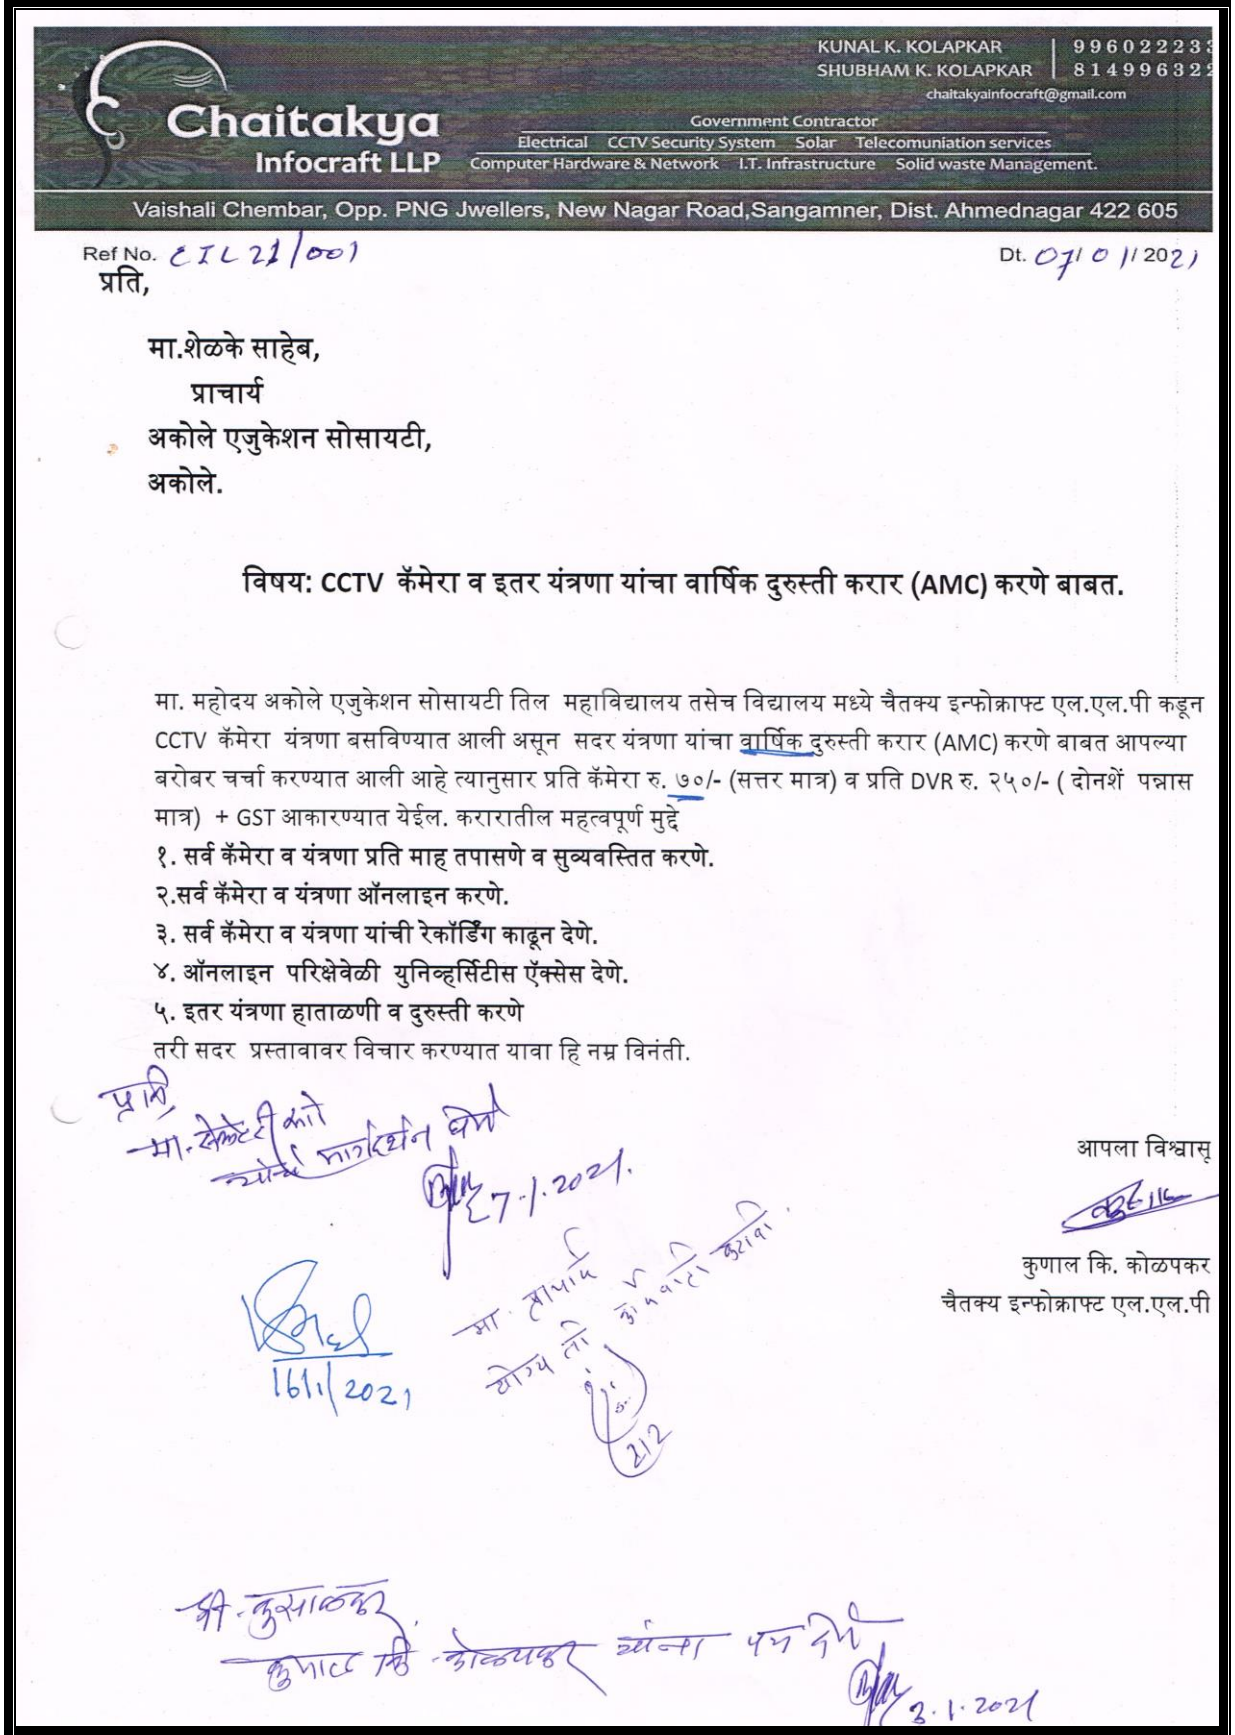 KUNAL K. KOLAPKAR | 996022233
SHUBHAM K. KOLAPKAR | 814996322
chaitakyainfocraft@gmail.com
Chaitakya
Infocraft LLP
Government Contractor
Electrical CCTV Security System Solar Telecomuniation services
Computer Hardware & Network I.T. Infrastructure Solid waste Management.
Vaishali Chembar, Opp. PNG Jwellers, New Nagar Road,Sangamner, Dist. Ahmednagar 422 605
Ref No. CIL21/001
Dt. 07/01/2021
प्रति,
मा.शेळके साहेब,
प्राचार्य
अकोले एजुकेशन सोसायटी,
अकोले.
विषय: CCTV कॅमेरा व इतर यंत्रणा यांचा वार्षिक दुरुस्ती करार (AMC) करणे बाबत.
मा. महोदय अकोले एजुकेशन सोसायटी तिल महाविद्यालय तसेच विद्यालय मध्ये चैतक्य इन्फोक्राफ्ट एल.एल.पी कडून
CCTV कॅमेरा यंत्रणा बसविण्यात आली असून सदर यंत्रणा यांचा वार्षिक दुरुस्ती करार (AMC) करणे बाबत आपल्या
बरोबर चर्चा करण्यात आली आहे त्यानुसार प्रति कॅमेरा रु. ७०/- (सत्तर मात्र) व प्रति DVR रु. २५०/- ( दोनशें पन्नास
मात्र) + GST आकारण्यात येईल. करारातील महत्वपूर्ण मुद्दे
१. सर्व कॅमेरा व यंत्रणा प्रति माह तपासणे व सुव्यवस्तित करणे.
२.सर्व कॅमेरा व यंत्रणा ऑनलाइन करणे.
३. सर्व कॅमेरा व यंत्रणा यांची रेकॉर्डिंग काढून देणे.
४. ऑनलाइन परिक्षेवेळी युनिव्हर्सिटीस ऍक्सेस देणे.
५. इतर यंत्रणा हाताळणी व दुरुस्ती करणे
तरी सदर प्रस्तावावर विचार करण्यात यावा हि नम्र विनंती.
प्रति,
मा. सेक्रेटरी
मार्गदर्शन
7.1.2021.
आपला विश्वासू
कुणाल कि. कोळपकर
चैतक्य इन्फोक्राफ्ट एल.एल.पी
मा. प्राचार्य
योग्य ती कार्यवाही करावी.
16/1/2021
श्री. कुसाळकर
कुणाल कि. कोळपकर यांना पत्र देणे
.1.2021